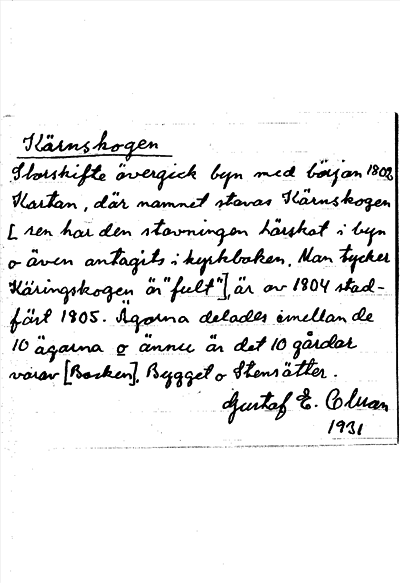 Kärnskogen
Storskifte övergick byn med början 1802
Kartan, där namnet stavas Kärnskogen
[sen har den stavningen härskat i byn
o även antagits i kyrkboken. Man tycker
Käringskogen är "fult"], är av 1804 stad-
fäst 1805. Ägorna delades emellan de
10 ägarna o ännu är det 10 gårdar
varav [Backen], Bygget o Stensätter.
Gustaf E.
1931